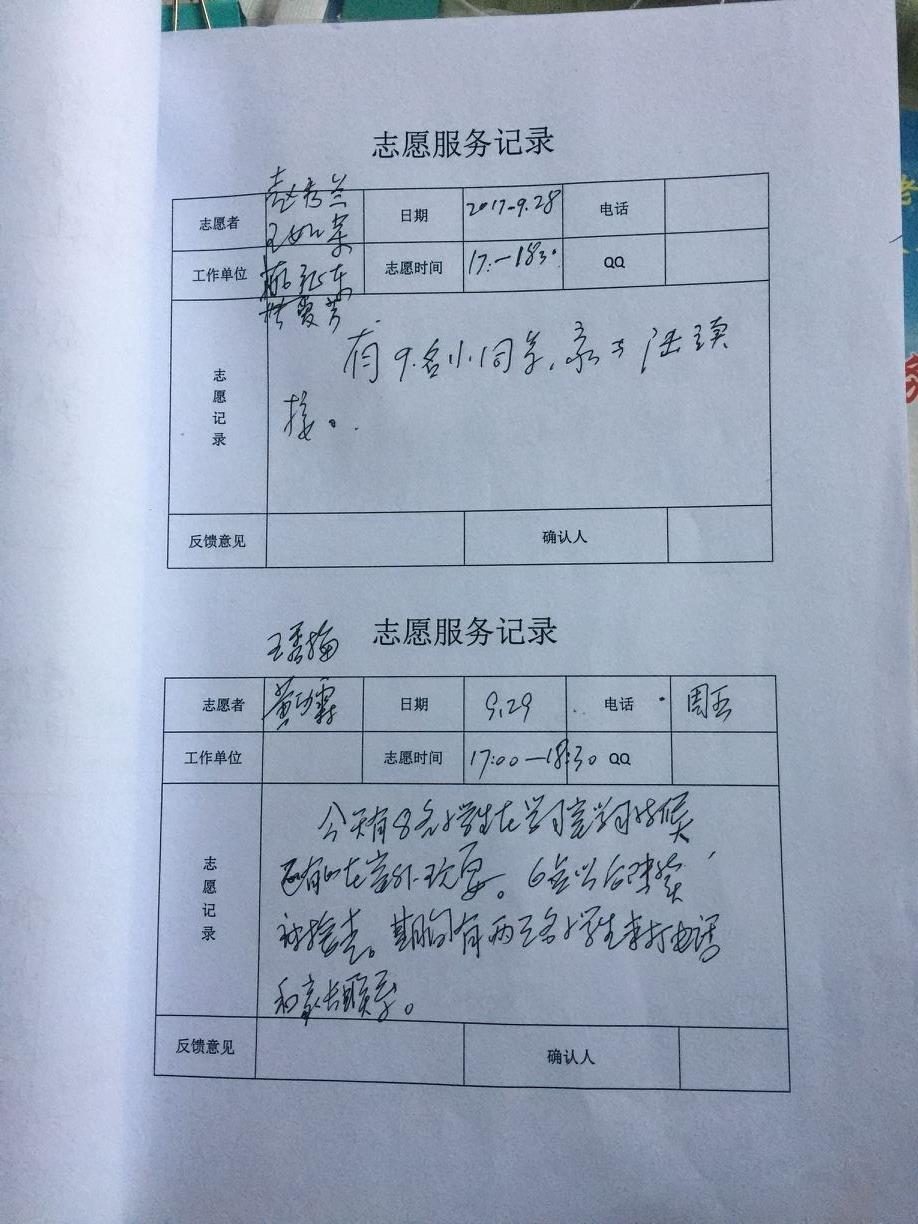 志愿服务记录
志愿者 赵秀兰 王如荣 日期 2017-9.28 电话
工作单位 志愿时间 17:-1830 QQ
志愿记录
有9名小同学,家长陆续
接。
反馈意见 确认人
志愿服务记录
王秀梅
志愿者 黄功霖 日期 9.29 电话 周五
工作单位 志愿时间 17:00-18:30 QQ
志愿记录
今天有8名小学生在学习室学习时候
还有的在室外玩耍。6点以后陆续
被接走。期间有两三名小学生来打电话
和家长联系。
反馈意见 确认人